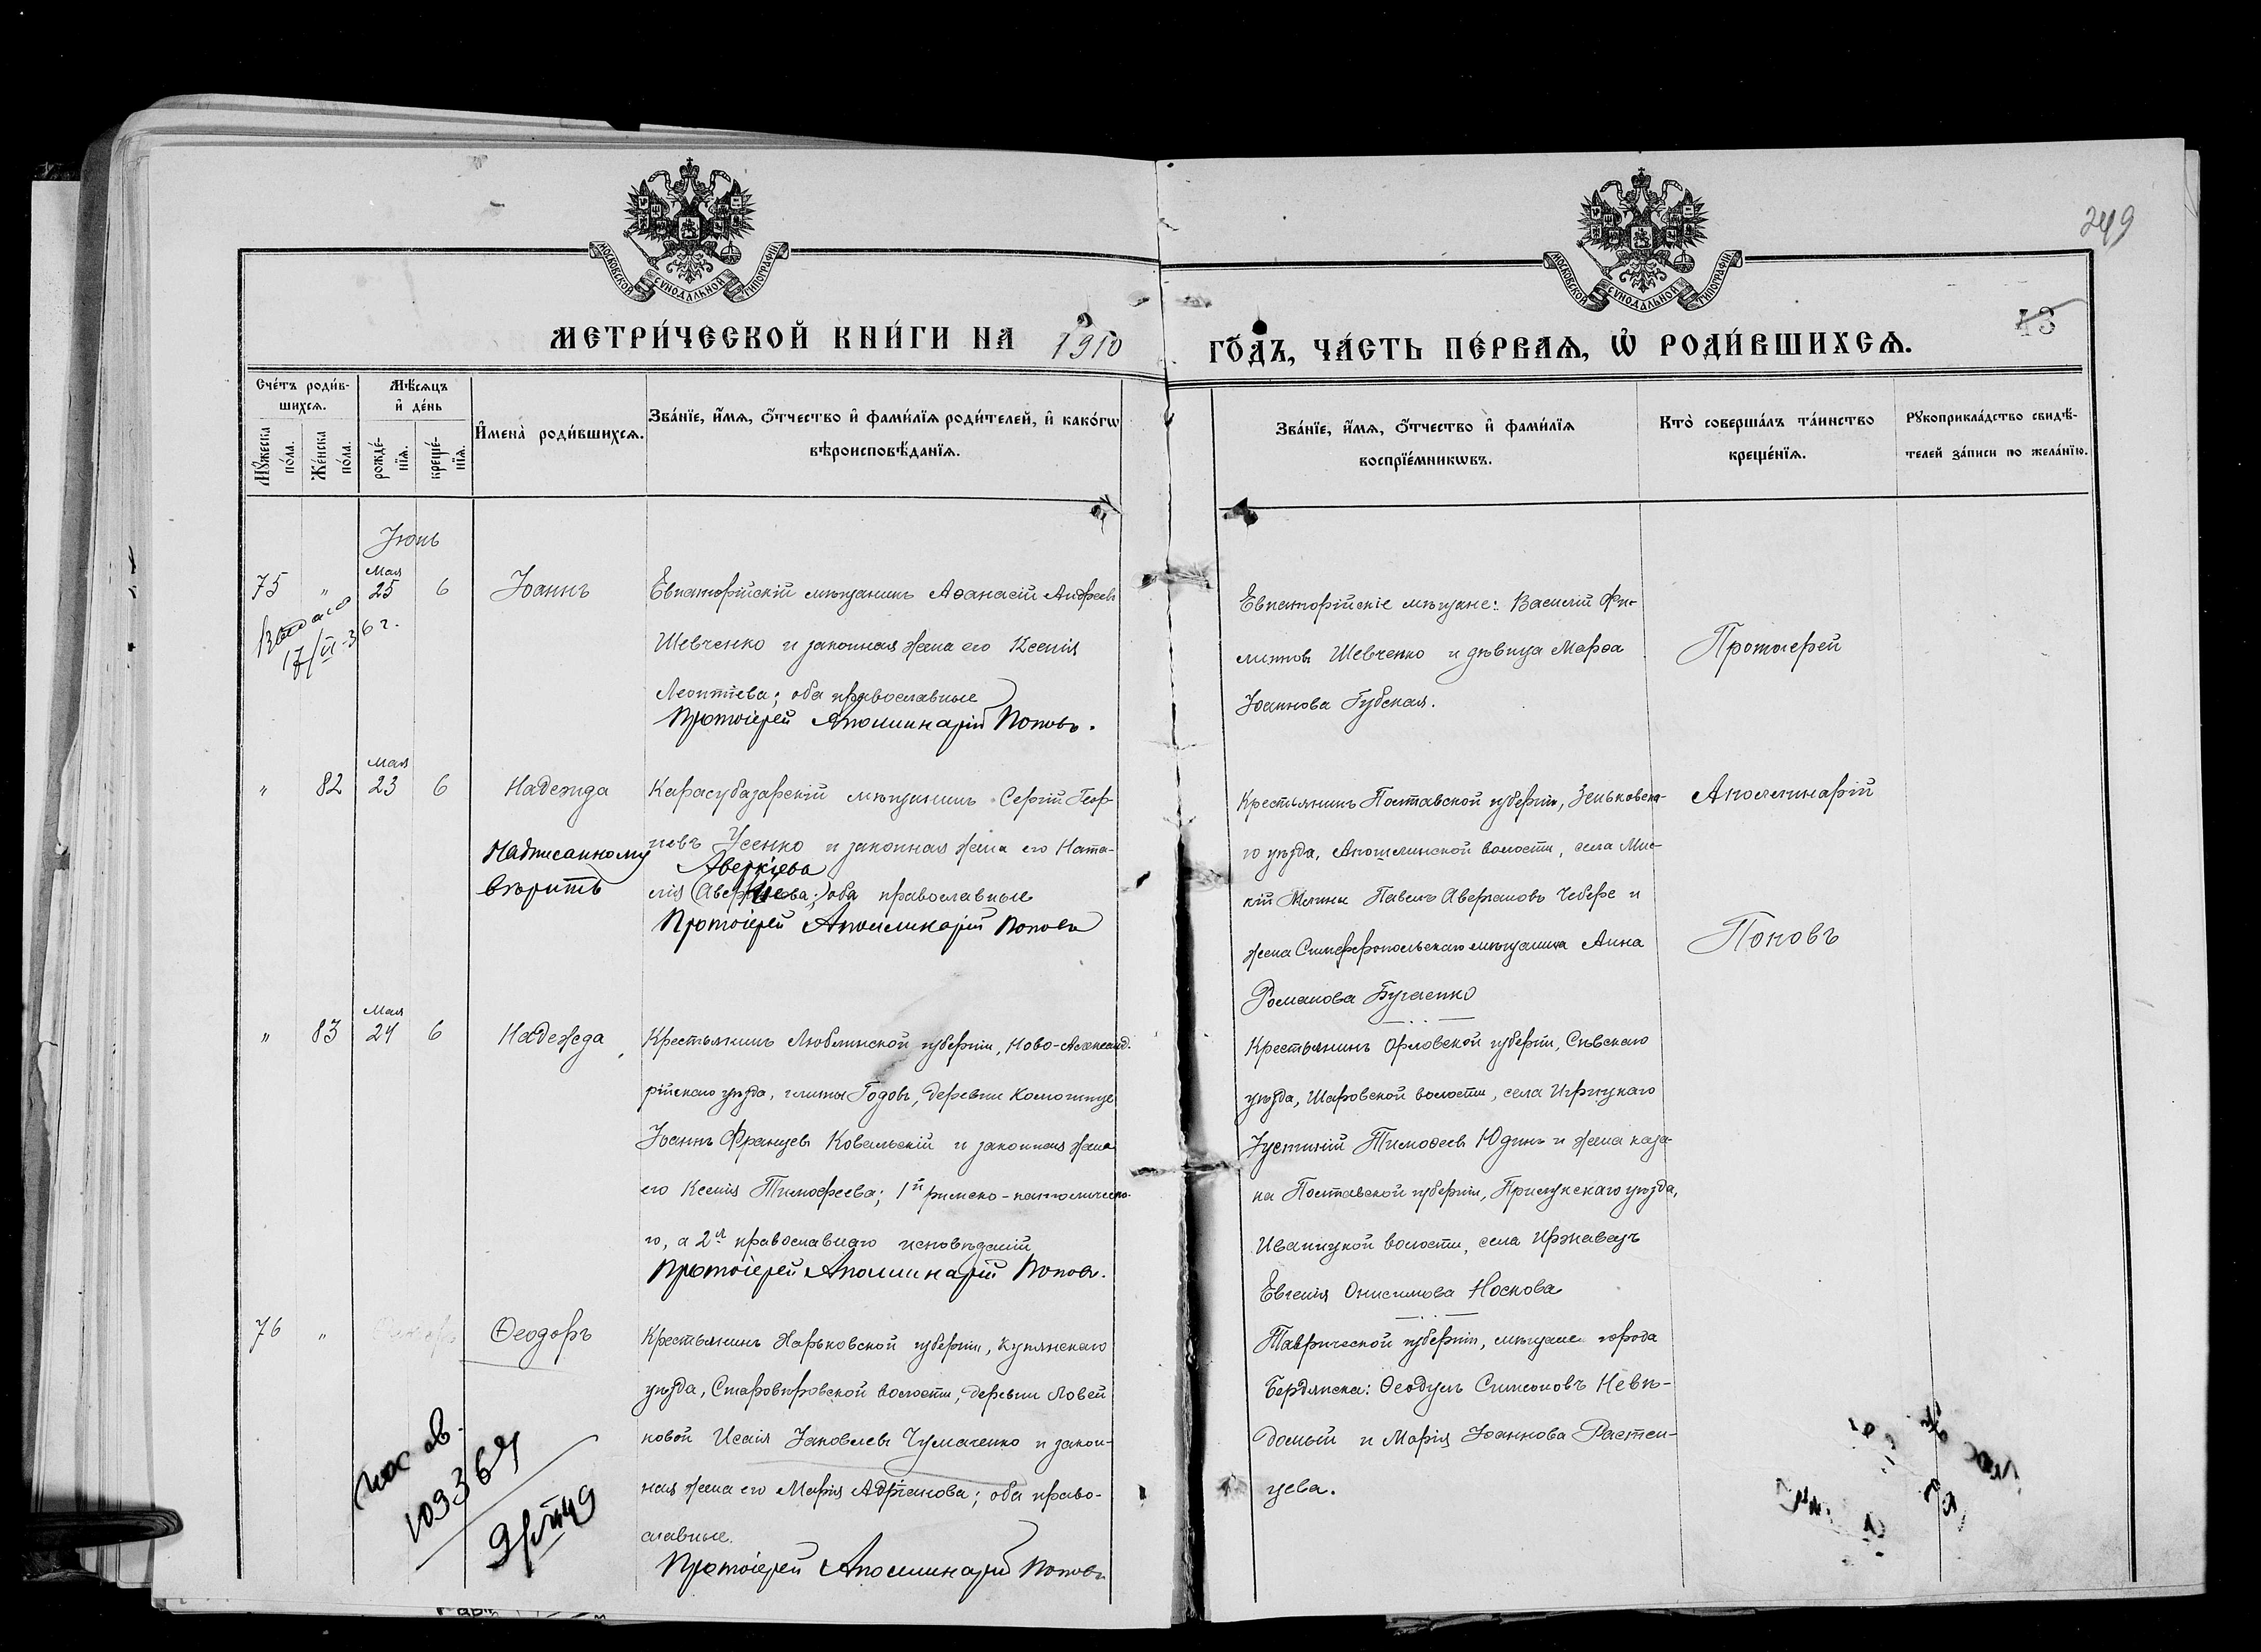 МОСКОВСКОЙ СУНОДАЛЬНОЙ ТИПОГРАФІИ
МОСКОВСКОЙ СУНОДАЛЬНОЙ ТИПОГРАФІИ
249
43
МЕТРИ́ЧЕСКОЙ КНИ́ГИ НА 1910
ГО́ДЪ, ЧА́СТЬ ПЕ́РВАѦ, Ѡ҆ РОДИ́ВШИХСѦ.
Сче́тъ роди́в-
шихсѧ.
Мѣ́сѧцъ
и҆ де́нь
Мꙋ́жеска
по́ла.
Же́нска
по́ла.
рожде́-
нїѧ.
креще́-
нїѧ.
И҆мена̀ роди́вшихсѧ.
Зва́нїе, и҆́мѧ, ѻ҆́тчество и҆ фами́лїѧ роди́телей, и҆ како́гѡ
вѣроисповѣ́данїѧ.
Зва́нїе, и҆́мѧ, ѻ҆́тчество и҆ фами́лїѧ
воспрїе́мникѡвъ.
Кто̀ соверша́лъ та́инство
креще́нїѧ.
Рꙋкоприкла́дство свидѣ́-
телей за́писи по жела́нїю.
Іюнь
Мая
75 " 25 6 Іоаннъ
17/VI-36 г.
Евпаторійскій мѣщанинъ Аѳанасій Андреевъ
Шевченко и законная жена его Ксенія
Леонтіева; оба православные
Протоіерей Аполлинарій Поповъ.
Евпаторійскіе мѣщане: Василій Фи-
липповъ Шевченко и дѣвица Марѳа
Іоаннова Губская.
Протоіерей
Аполлинарій
Поповъ
Мая
" 82 23 6 Надежда
Надписанному
вѣрить
Карасубазарскій мѣщанинъ Сергій Геор-
гіевъ Усенко и законная жена его Ната-
Аверкіева
лія оба православные
Протоіерей Аполлинарій Поповъ
Крестьянинъ Полтавской губерніи, Зеньковска-
го уѣзда, волости, села
Павелъ и
жена Симферопольскаго мѣщанина Анна
Романова
Мая
" 83 24 6 Надежда
Крестьянинъ Люблинской губерніи, Ново-Александ-
рійскаго уѣзда, гмины Годовъ, деревни
Іоаннъ Францевъ Ковальскій и законная жена
его Ксенія Тимофеева; 1й римско-католическа-
го, а 2я православнаго исповѣданій
Протоіерей Аполлинарій Поповъ.
Крестьянинъ Орловской губерніи, Сѣвскаго
уѣзда, Шаровской волости, села Игрицкаго
Іустиній Тимоѳеевъ Юдинъ и жена каза-
ка Полтавской губерніи, Прилукскаго уѣзда,
Иваницкой волости, села Иржавецъ
Евгенія Онисимова Носкова
76 " Ѳеодоръ
Крестьянинъ Харьковской губерніи, Купянскаго
уѣзда, Старовѣровской волости, деревни
Исаія Іаковлевъ Чумаченко и закон-
ная жена его Марія Адріанова; оба право-
славные.
Протоіерей Аполлинарій Поповъ
Таврической губерніи, мѣщане города
Бердянска: Ѳеодулъ Симеоновъ Невѣ-
домый и Марія Іоаннова Растен-
цева.
103364
9/VI 49